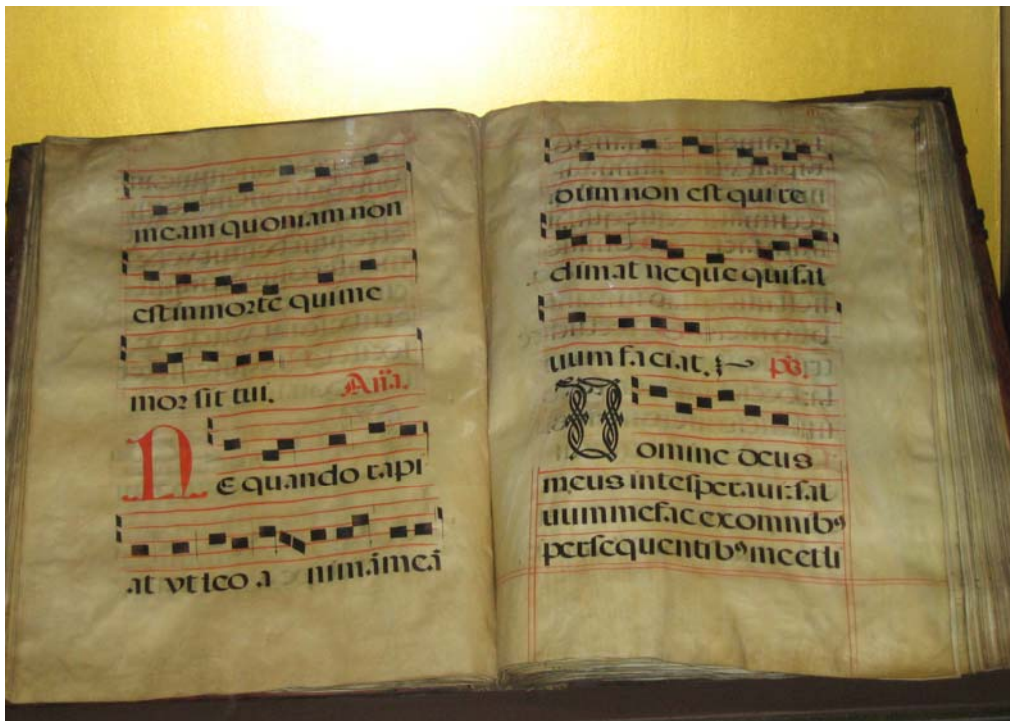 meam quoniam non
est in morte qui me
mor sit tui. Aña.
NE quando rapi
at vt leo a nimã meã
dum non est qui re
dimat neque qui sal
uum faciat. ps̃.
Domine deus
meus in te speraui: sal
uum me fac ex omnibꝰ
persequentibꝰ me et li